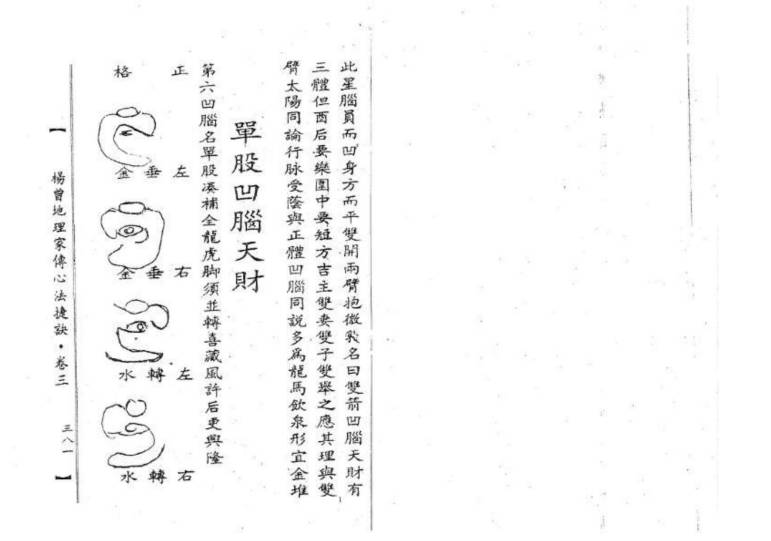 此星腦員而凹身方而平雙開兩臂抱微名曰雙箭凹腦天財有
三體但西后要樂圍中要短方吉主雙妻雙子雙舉之應其理與雙
臂太陽同論行脉受蔭與正體凹腦同説多為龍馬飲泉形宜金堆
單股凹腦天財
第六凹腦名單股湊補全龍虎脚須並轉喜藏風許后更興隆
正格
左垂金
右垂金
左轉水
右轉水
【楊曾地理家傳心法捷訣・卷三 三八一】